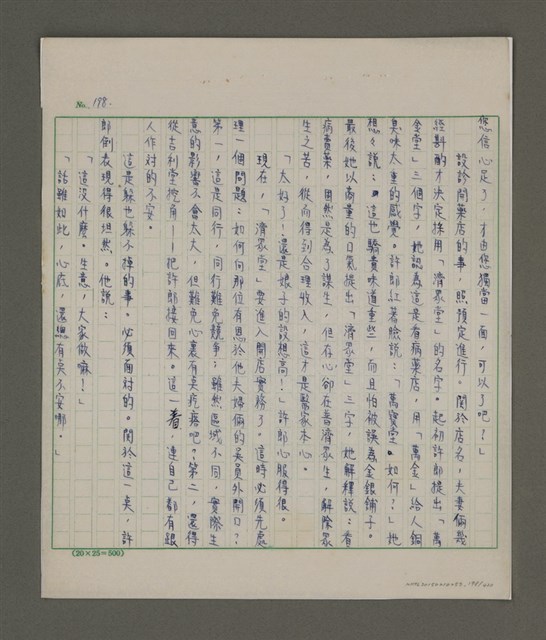 No. 198.
您信心足了，才由您獨當一面，可以了吧？」
設診開藥店的事，照預定進行。關於店名，夫妻倆幾
經斟酌才決定採用「濟眾堂」的名字。起初許郎提出「萬
金堂」三個字，她認為這是看病藥店，用「萬金」給人銅
臭味太重的感覺。許郎紅著臉說：「萬寶堂。如何？」她
想想說：這也驕貴味道重些，而且怕被誤為金銀鋪子。
最後她以商量的口氣提出「濟眾堂」三字，她解釋說：看
病賣藥，固然是為了謀生，但在心卻在普濟眾生，解除眾
生之苦，從而得到合理收入，這才是醫家本心。
「太好了！還是娘子的設想高！」許郎心服得很。
現在，「濟眾堂」要進入開店實務了。這時必須先處
理一個問題：如何向那位有恩於他夫婦倆的吳員外開口？
第一，這是同行，同行難免競爭；雖然區域不同，實際生
意的影響不會太大，但難免心裏有吳疙瘩吧？第二，還得
從吉利堂挖角——把許郎接回來。這一着，連自己都有跟
人作對的不安。
這是躲也躲不掉的事。必須面對的。關於這一矣，許
郎倒表現得很坦然。他說：
「這沒什麼。生意，大家做嘛！」
「話雖如此，心底，還是有矣不安哪。」
(20×25=500)